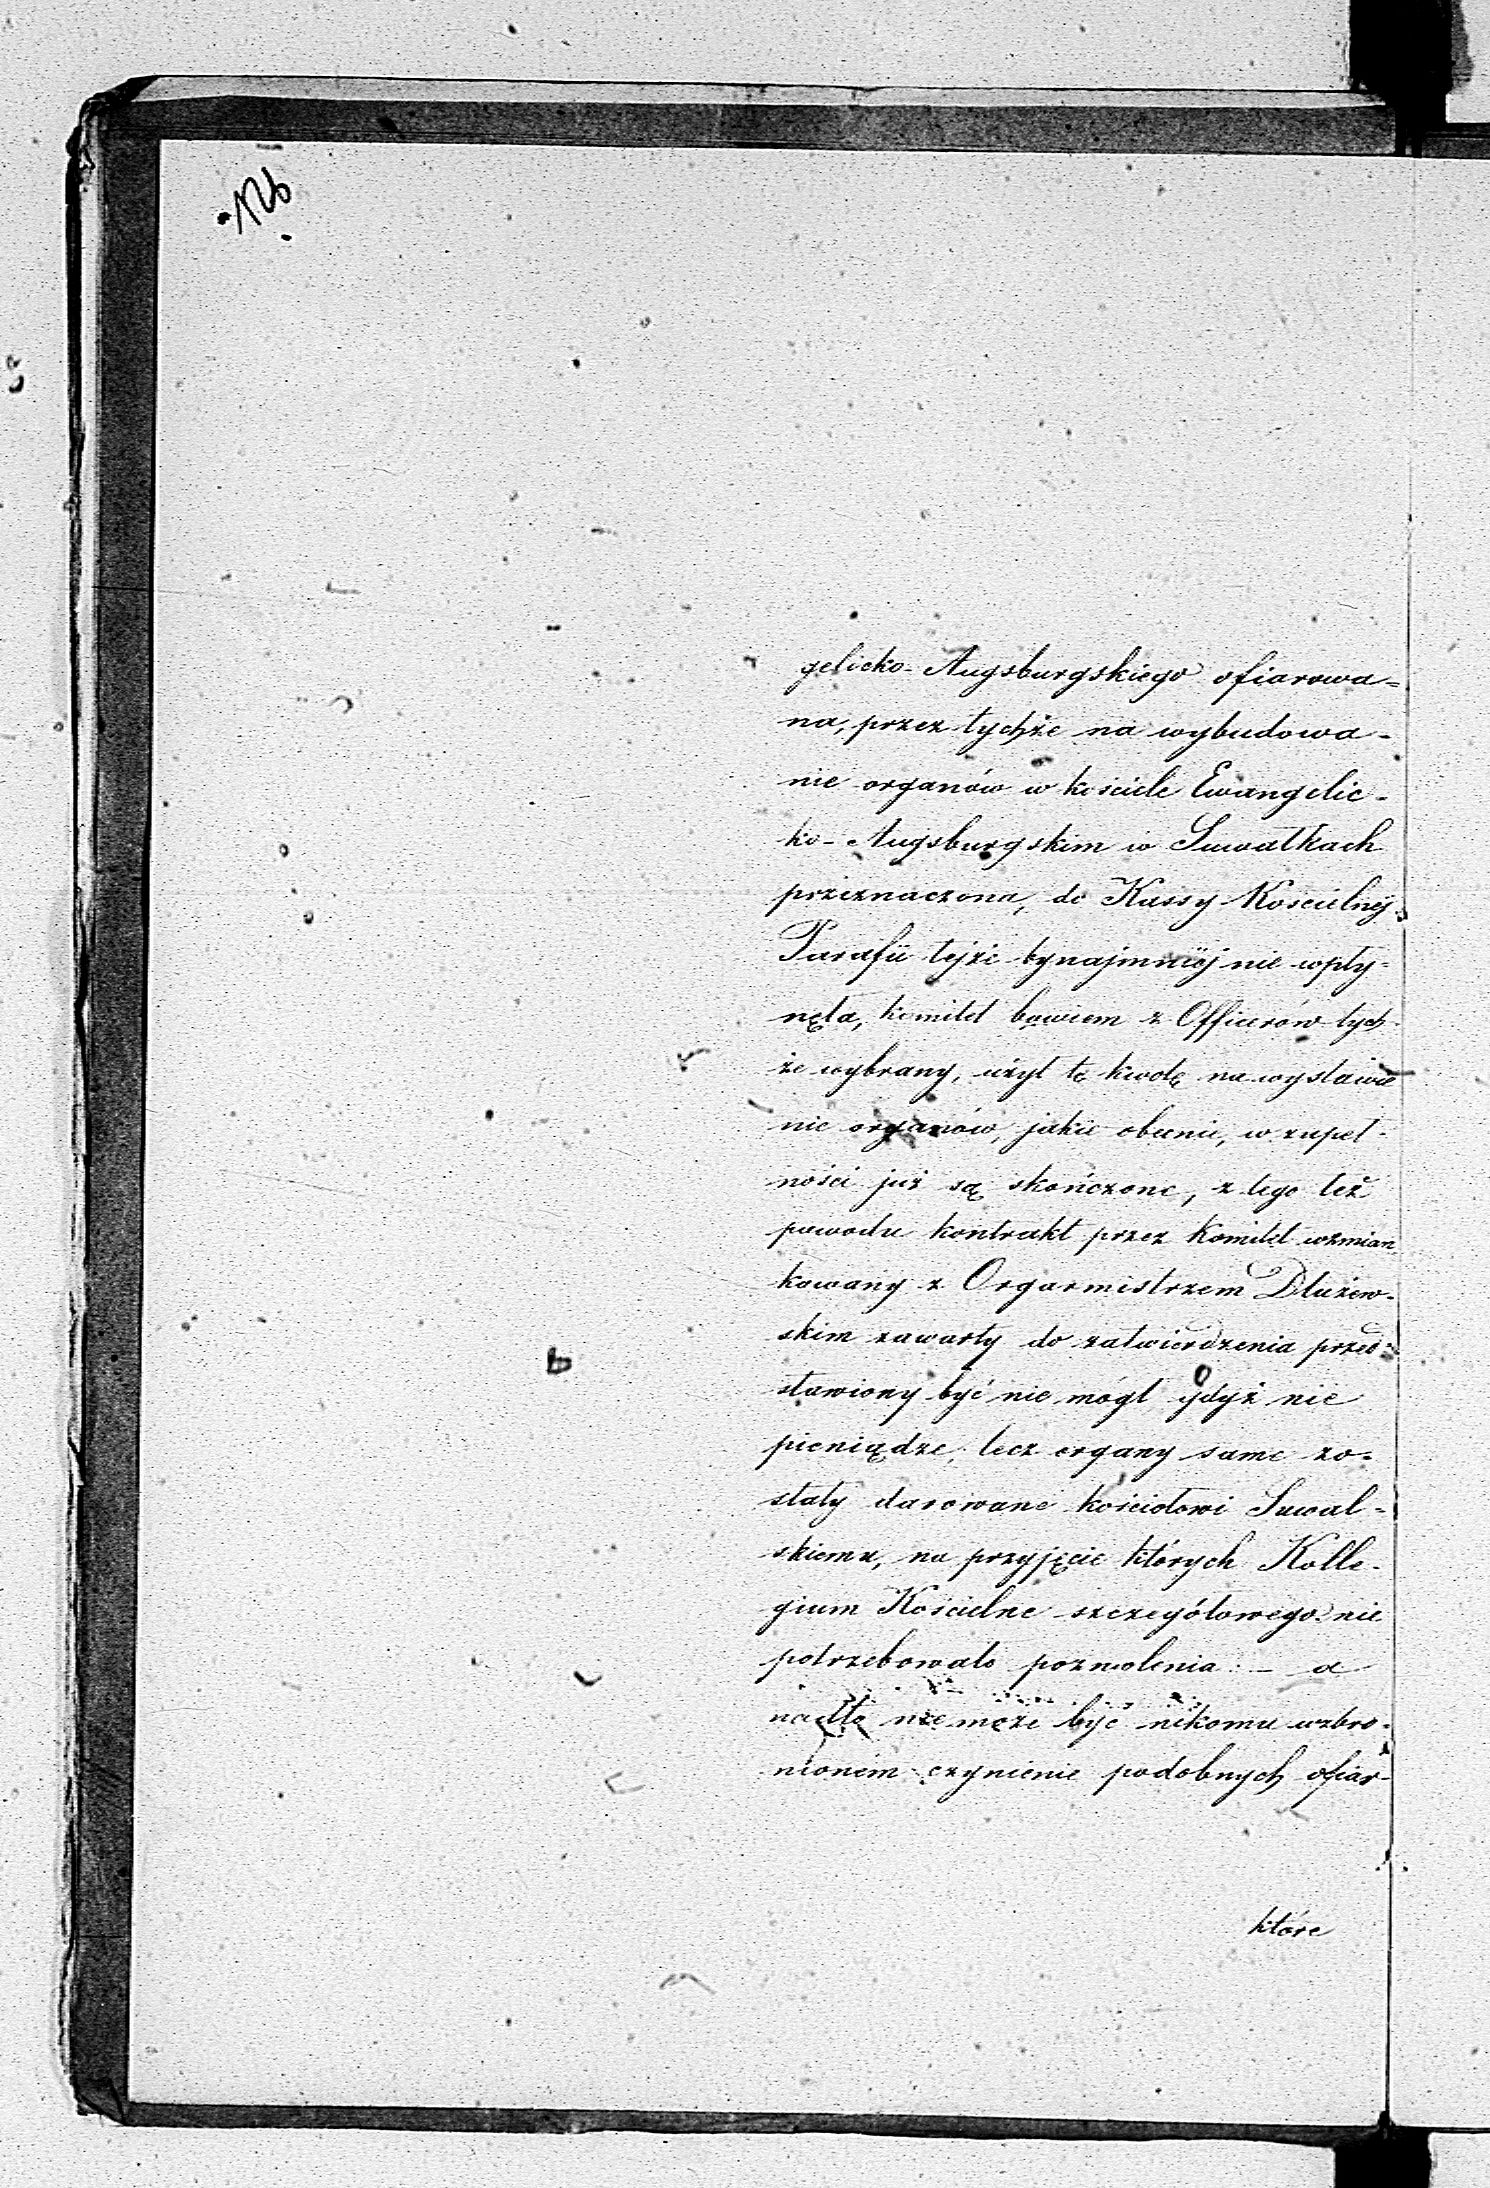 126
gelicko-Augsburgskiego ofiarowa=
na, przez tychże na wybudowa-
nie organów w kościele Ewangelic-
ko-Augsburgskim w Suwałkach
przeznaczona, do Kassy Kościelnéj
Parafii tejże bynajmniéj nie wpły-
nęła, komitet bowiem z Officerów tych-
że wybrany, użył tę kwotę na wystawie
nie organów, jakie obecnie, w zupeł-
ności już są skończone, z tego też
powodu kontrakt przez Komitet wzmian
kowany z Organmistrzem Dłużew-
skim zawarty do zatwierdzenia przed-
stawiony być nie mógł gdyż nie
pieniądze, lecz organy same zo-
stały darowane kościołowi Suwal-
skiemu, na przyjęcie których Kolle-
gium Kościelne szczegółowego nie
potrzebowało pozwolenia: - a
nadto nie może być nikomu wzbro-
nioném czynienie podobnych ofiar-
które